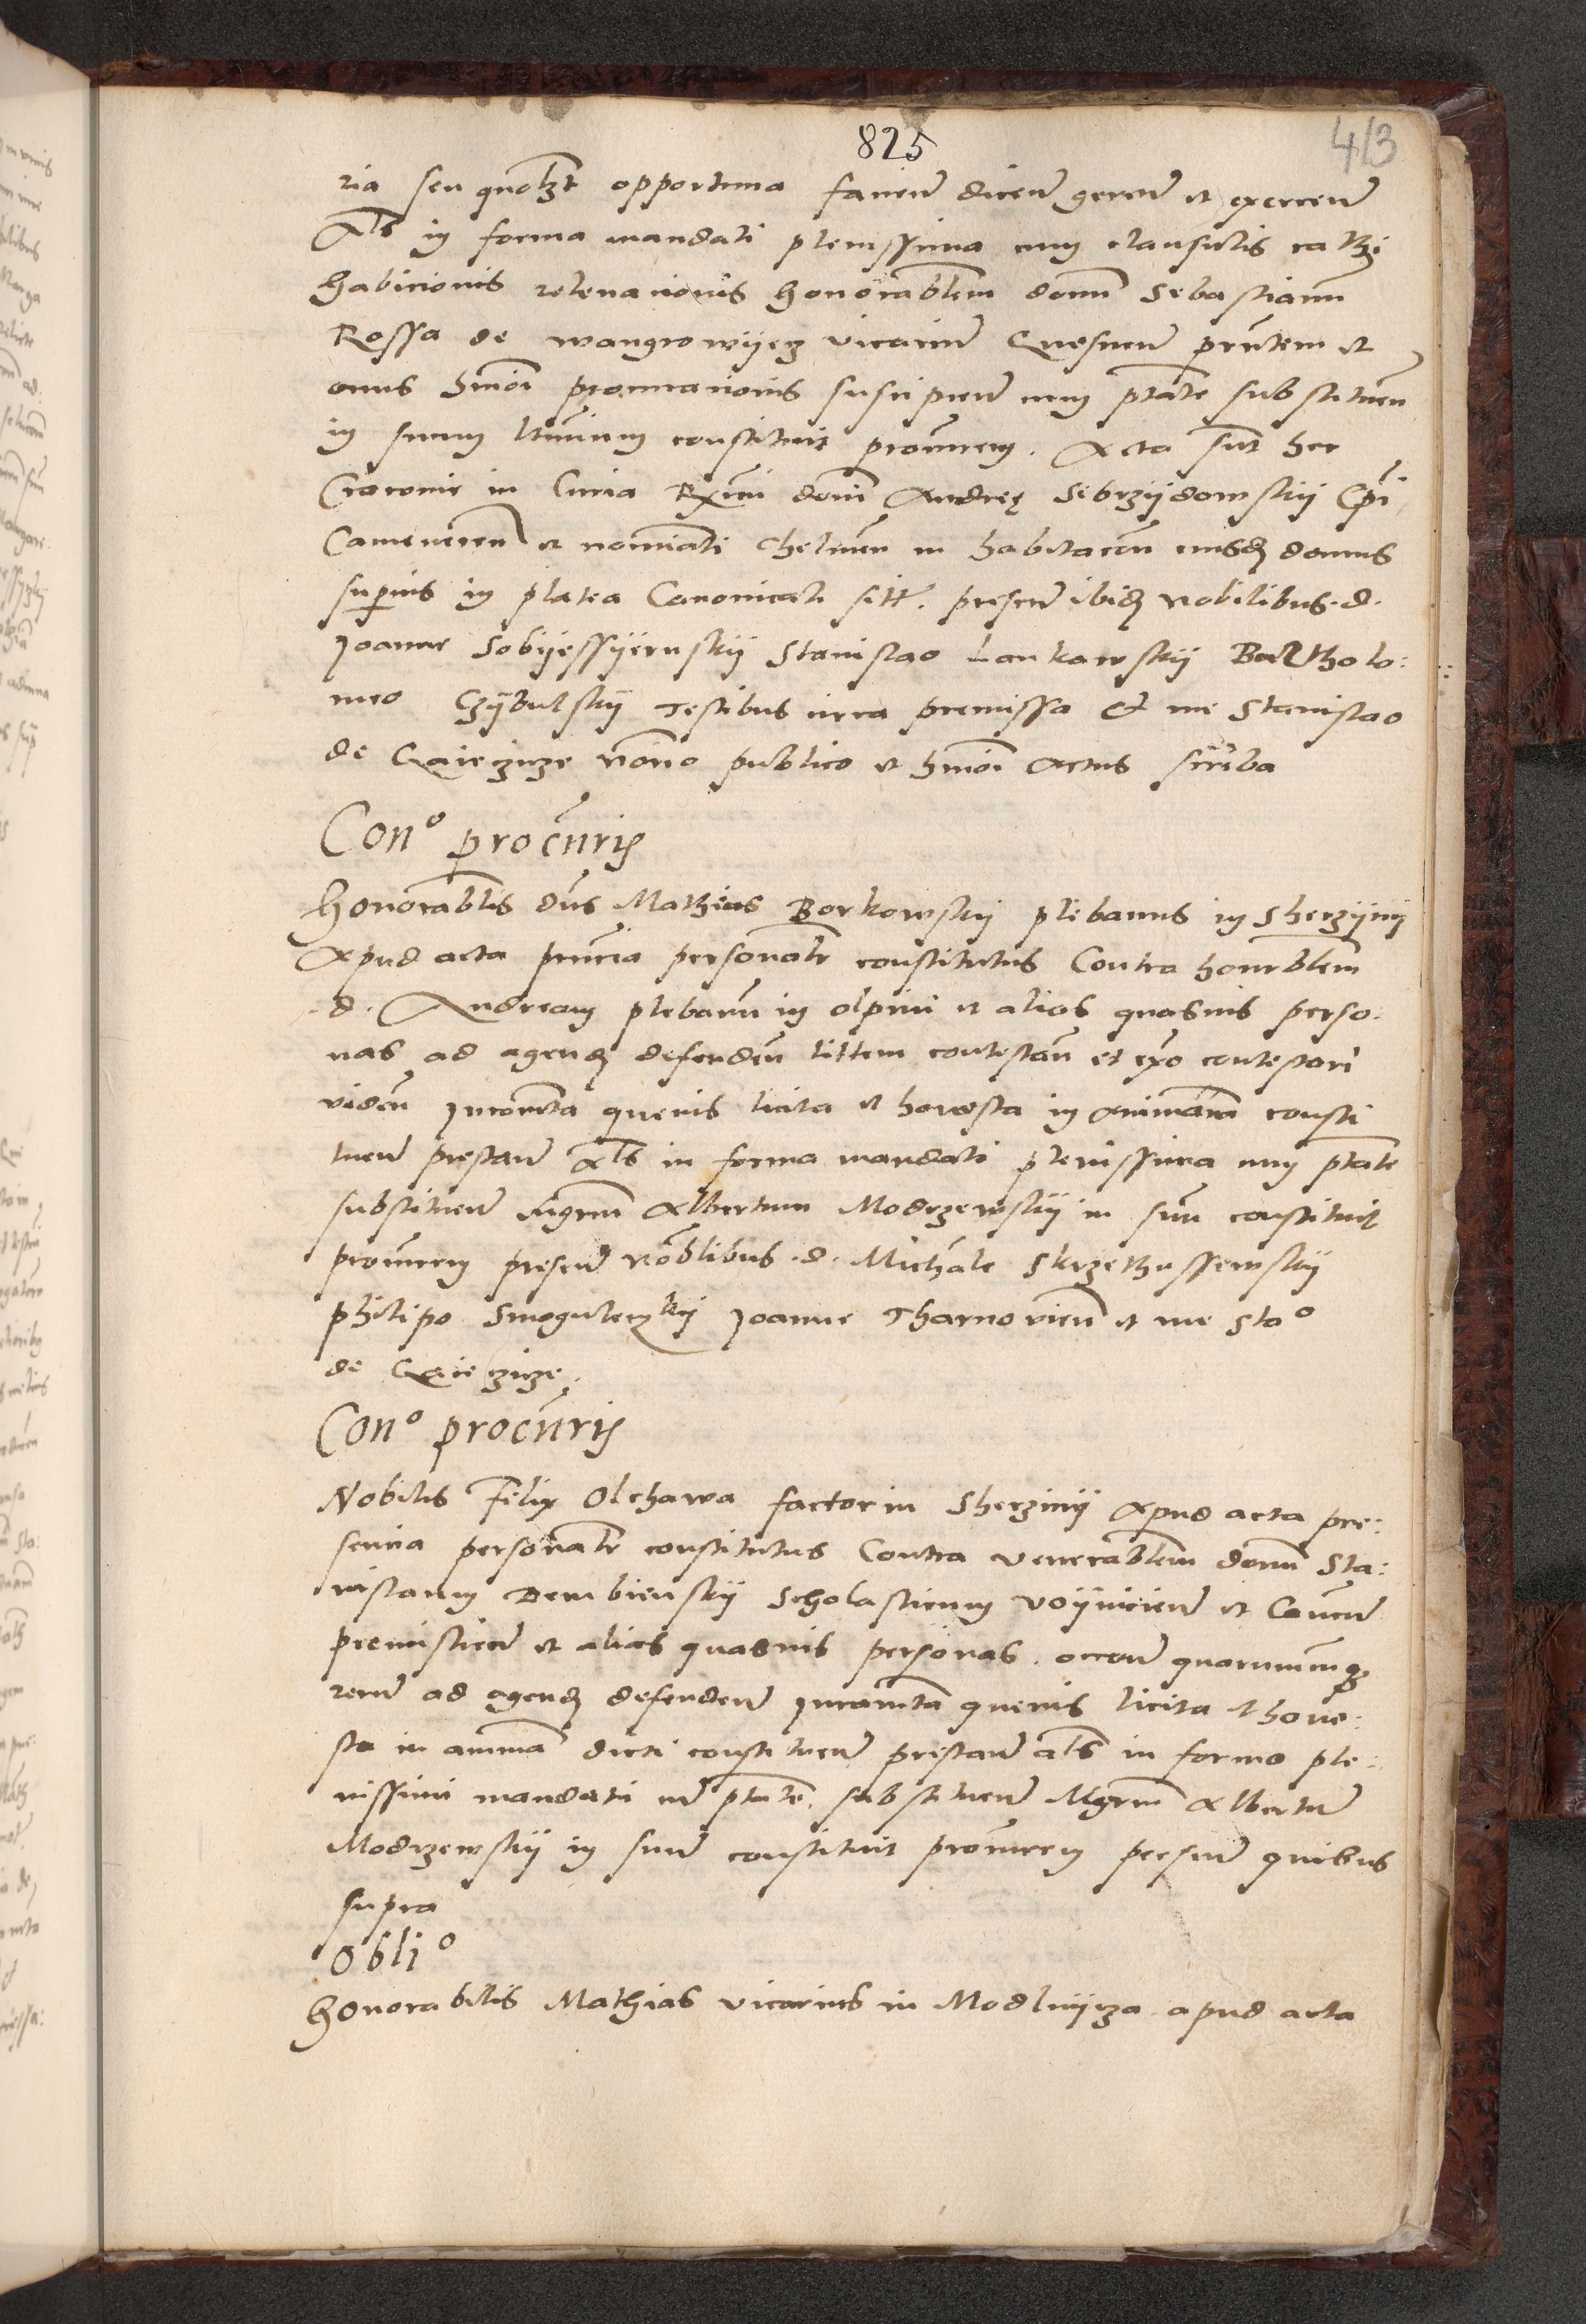 825
413
ria seu quolzt opportuna faciend dicend gerend et exercend
Als in forma mandati plenissima cum clausulis rathi
habicionis relevacionis honorablem domn Sebastianu
Rossa de Wangrowijecz vicarium Gnesnen prntem et
onus hmoi procuracionis suscipien cum ptate substituen
in suum ltimum constituit procurem. Acta sut hec
Cracovie in Curia Rximi domi Andreę Sebrzijdowskij Epi
Cameneceñ et nominati Chelmen in habitacon eiusd domus
superius in platea Canonicali sitt. presen ibid Nobilibus d.
Joanne Sobijessijernskij Stanislao Lankawskij Bartholo:
meo Czijbulskij Testibus circa premissa Et me Stanislao
de Qaieczicze notrio publico et hmoi Actus scriba
Con° procuris
Honorablis dns Mathias Borkowskij plebanus in Sherzijnij
Apud acta prncia personalr constitutus Contra honorblem
.d. Andream plebanu in olpini et alios quasvis perso:
nas ad agend defenden littem contestan et expo contestari
viden Juramta quevis licita et honesta in animam consti
tuend prestand Als in forma mandati plenissima cum ptate
substituend Mgrm Albertum Modrzewskij in suu constituit
procurem presen Noblibus d. Michale Skrzethussewskij
philipo Smoguleczkij Joanne Tharnovien et me Sta°
de Qaieczicze.
Con° procuris
Nobilis Felix Olchawa factor in Sherzinij Apud acta pre:
sencia personalr constitutus Contra venerablem domn Sta:
nislaum Dembienskij Scholasticum Voijnicien et Cancum
premislien et alias quasvis personas . occone quarumcumq
rerum ad agend defendend Juramta quevis licita et hone:
sta in animam dicti constituend prestand als in forma ple:
nissimi mandati cum ptate substituend Mgrm Albertu
Modrzewskij in suum constituit procurem presen quibus
supra
Obli°
Honorabilis Mathias vicarius in Modlnijcza apud acta